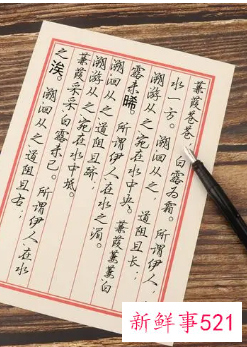 蒹葭苍苍，白露为霜。所谓伊人，在
水一方。溯洄从之，道阻且长；
溯游从之，宛在水中央。蒹葭萋萋，白
露未晞。所谓伊人，在水之湄。
溯洄从之，道阻且跻；
溯游从之，宛在水中坻。
蒹葭采采，白露未已。所谓伊人，在水
之涘。溯洄从之，道阻且右；
新鲜事521